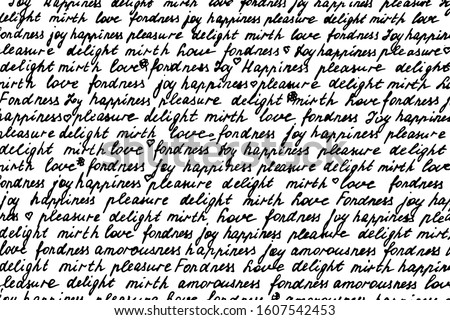 Joy love fondness joy happiness pleasure
fondness joy happiness pleasure delight mirth love
fondness joy happiness pleasure delight mirth love fondness Joy happiness
pleasure delight mirth Love fondness Joy happiness pleasure
delight mirth love fondness Joy Happiness pleasure delight
mirth love fondness joy happiness pleasure delight mirth
Fondness Joy happiness pleasure delight mirth Love fondness
happiness pleasure delight mirth love fondness Joy happiness
pleasure delight mirth love fondness joy happiness pleasure
mirth love fondness joy happiness pleasure delight mirth
fondness joy happiness pleasure delight mirth love fondness
delight mirth love fondness joy happiness pleasure delight love
fondness joy happiness pleasure delight mirth love fondness
joy happiness pleasure delight mirth Love Fondness joy
pleasure delight mirth, Love fondness joy happiness
love fondness joy happiness pleasure delight mirth
love fondness amorousness happiness joy amorousness fondness
delight mirth pleasure Fondness Love delight mirth happiness
joy delight mirth amorousness fondness amorousness love
joy happiness pleasure love fondness amorousness happiness
shutterstock
IMAGE ID: 1607542453
www.shutterstock.com